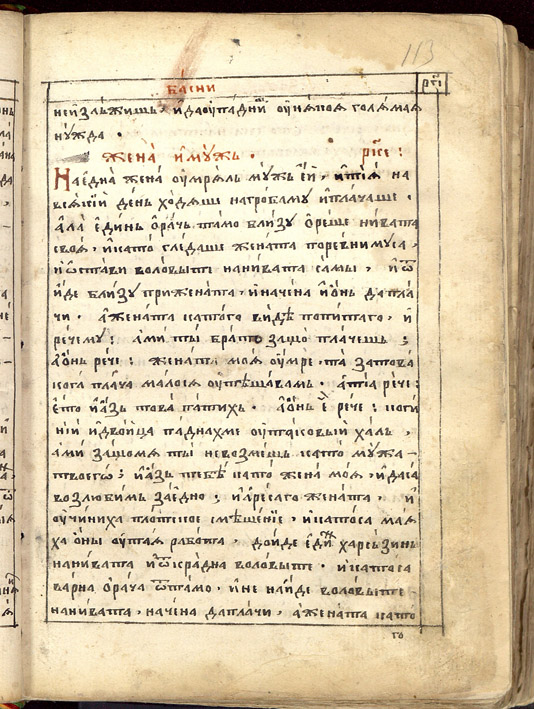 113
ба́сни рг҃і
неизлѣ́жишъ, и҆даѹ҆падни́й ѹ҆на́поѧ голѣ́маѧ
нꙋ́жда.
жена̀ и҆мꙋ́жъ. рк҃є:
На є҆дна̀ жена̀ ѹ҆мрѧ́лъ мꙋ́жъ ѐй, и҆тїѧ̀ на
всѧ́кїй де́нь хо́дѧше нагро́баму и҆пла́чаше.
а҆ла̀ є҆ди́нъ ѻ҆ра́чь та́мо бли́зу ѻ҆ре́ше ни́вата
своѧ̀, и҆като̀ глѣ́даше жена́та поревни́муса,
и҆ѡ҆ста́ви воло́выте нани́вата са́мы, и҆ѿ
и́де бли́зу прижена́та, и҆наче́на и҆ѻ́нь дапла́
чи. а҆жена́та като́го ви́дѣ попи́таго, и҆
ре́чему: а҆мѝ ты̀ бра́те защо̀ пла́чешъ;
а҆ѻ́нь ре́че: жена́та моѧ̀ ѹ҆мрѐ, та̀ затова̀
кога̀ пла́ча ма́лосѧ ѹ҆тѣша́вамъ. а҆тїѧ̀ ре́че:
є҆то̀ и҆а́зь това̀ па́тихъ. а҆ѻ́нь є҆̀ ре́че: коги
ни́й и҆дво́йца па́днахме ѹ҆та́ковый ха́лъ,
а҆мѝ защо́мѧ ты̀ невозме́шъ като̀ мꙋ́жа
твоего̀; и҆а́зь те́бѣ като̀ жена̀ моѧ̀, и҆да́са
возлю́бимъ зае́дно; и҆а҆реса́го жена́та, и҆
ѹ҆чини́ха пло́тское смѣше́нїе, и҆като́са маѧ́
ха ѻ҆ны̀ ѹ҆таѧ рабо́та, до́йде є҆ди́нъ харсы́зинъ
нани́вата и҆ѿкра́дна воло́выте. и҆като́са
ва́рна ѻ҆ра́ча ѿта́мо, и҆не на́йде воло́выте
нани́вата, наче́на дапла́чи, а҆жена́та като̀
го